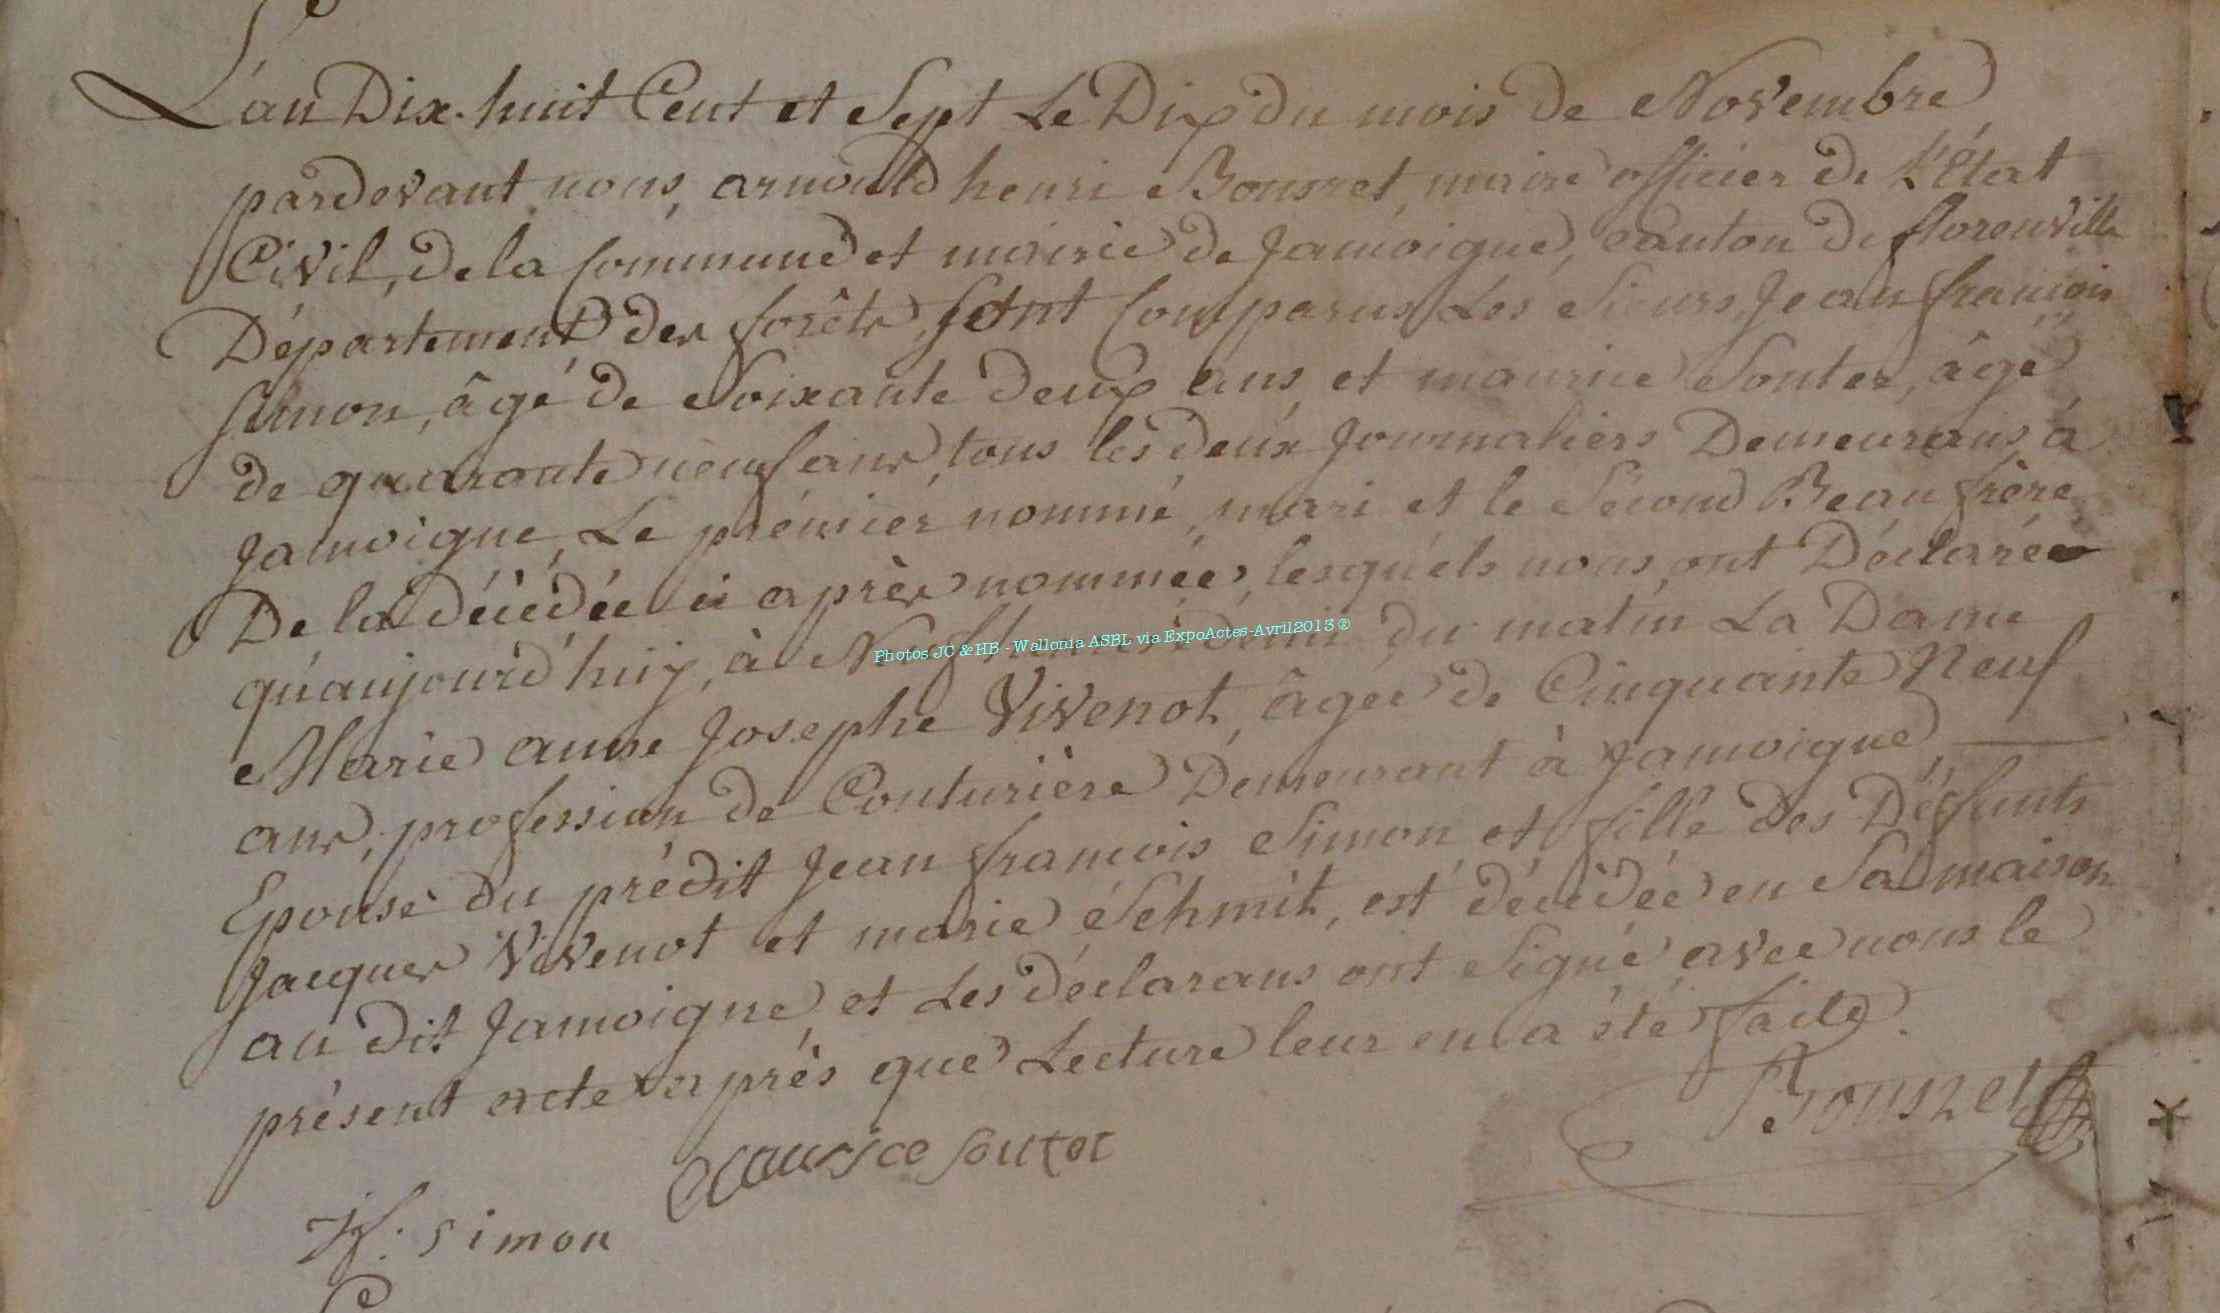 L'an Dix-huit Cent et Sept Le Dix du mois de Novembre
pardevant nous, arnould henri Bousret, maire officier de L'État
Civil, de la Commune et mairie de Jamoigne, Canton de florenville
Département des forêts, sont Comparus Les Sieurs Jean francois
Simon, âgé de Soixante deux ans, et maurice Souter, âgé
de quarante neuf ans, tous les deux Journaliers Demeurans à
Jamoigne, Le prémiér nommé, mari et le Sécond Beau frère
De la décédée ci après nommée, lesquels nous ont Déclarée
qu'aujourd'huy, à Neuf du matin La Dame
Marie anne Josephe Vivenot, âgée de Cinquante Neuf
ans, profession de Couturière Demeurant à Jamoigne,
Epouse du prédit Jean francois Simon et fille des Défunts
Jacques Vivenot et marie Schmit, est décédée en Sa maison
au dit Jamoigne, et Les déclarans ont Signé avec nous le
présent acte après que Lecture leur en a été faite.
Bousret
Maurice Souter
Jf. Simon
Photos JC & HB - Wallonia ASBL via ExpoActes-Avril2013 ®